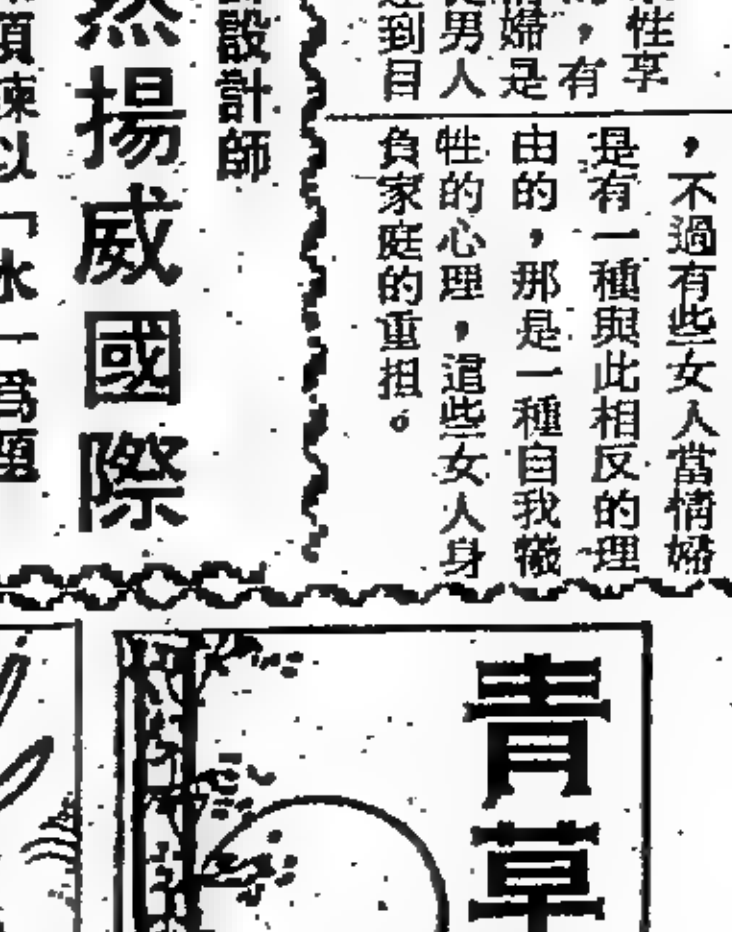 性享
，有
婦是
男人
到目
，不過有些女人當情婦
是有一種與此相反的理
由的，那是一種自我犧
牲的心理，這些女人身
負家庭的重担。
設計師
揚威國際
以「水
爲題
青草